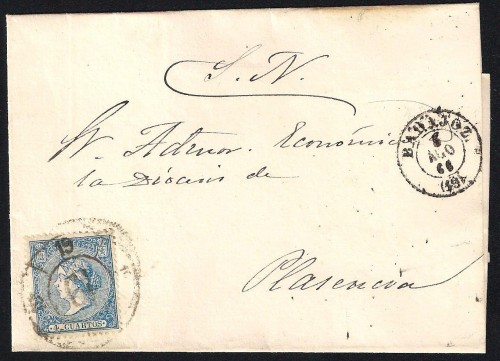 S. N.
Sr. Admor. Económico
de la Diócesis de
Plasencia
BADAJOZ
6
AGO
66
(19)
19
4 CUARTOS